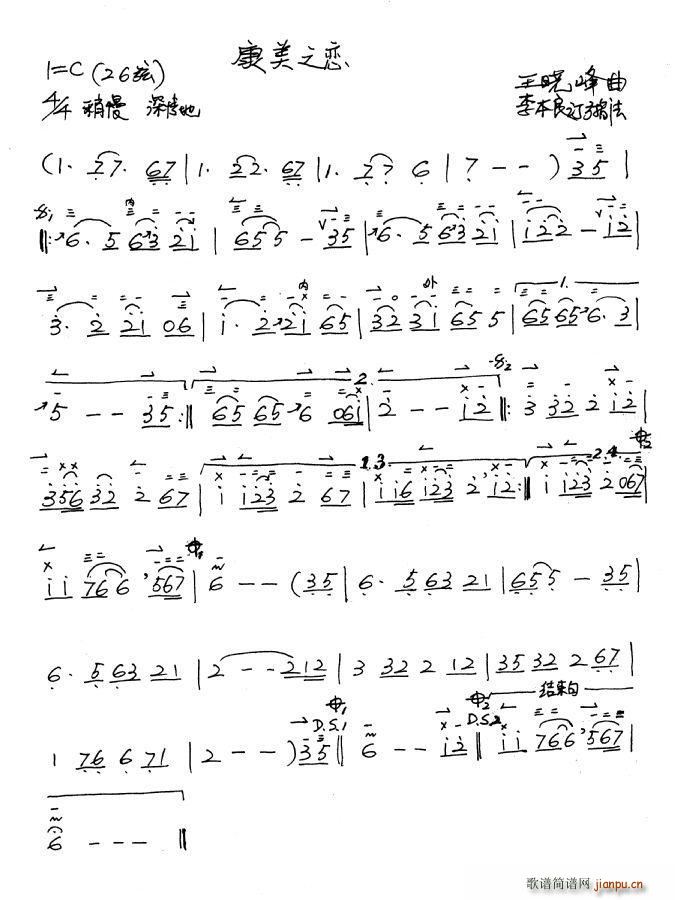 康美之恋
1=C (26弦)
王晓峰曲
4/4 稍慢 深情地
李本良订指法
(1. 27. 67 | 1. 22. 67 | 1. 77 6 | 7 - - ) 35 |
𝄋1 ‖: 6. 5 63 21 | 655 - 35 | 6. 5 63 21 | 122 - 12 |
内
3. 2 21 06 | 1. 2 21 65 | 32 31 655 | 65 65 6. 3 |
内 外 1.
5 - - 35 :‖ 65 65 6 061 | 2 - - 12 ‖: 3 32 2 12 |
2. 𝄋2
356 32 2 67 | 1 123 2 67 | 116 123 2, 12 :‖ 1 123 2 067 |
1.3. 2.4.
11 766, 567 | 6 - - (35 | 6. 563 21 | 655 - 35 |
6. 563 21 | 2 - - 212 | 3 32 2 12 | 35 32 2 67 |
结束句
1 76 6 71 | 2 - - ) 35 ‖ 6 - - 12 ‖ 11 766, 567 |
D.S.1 D.S.2
6 - - - ‖
歌谱简谱网 jianpu.cn